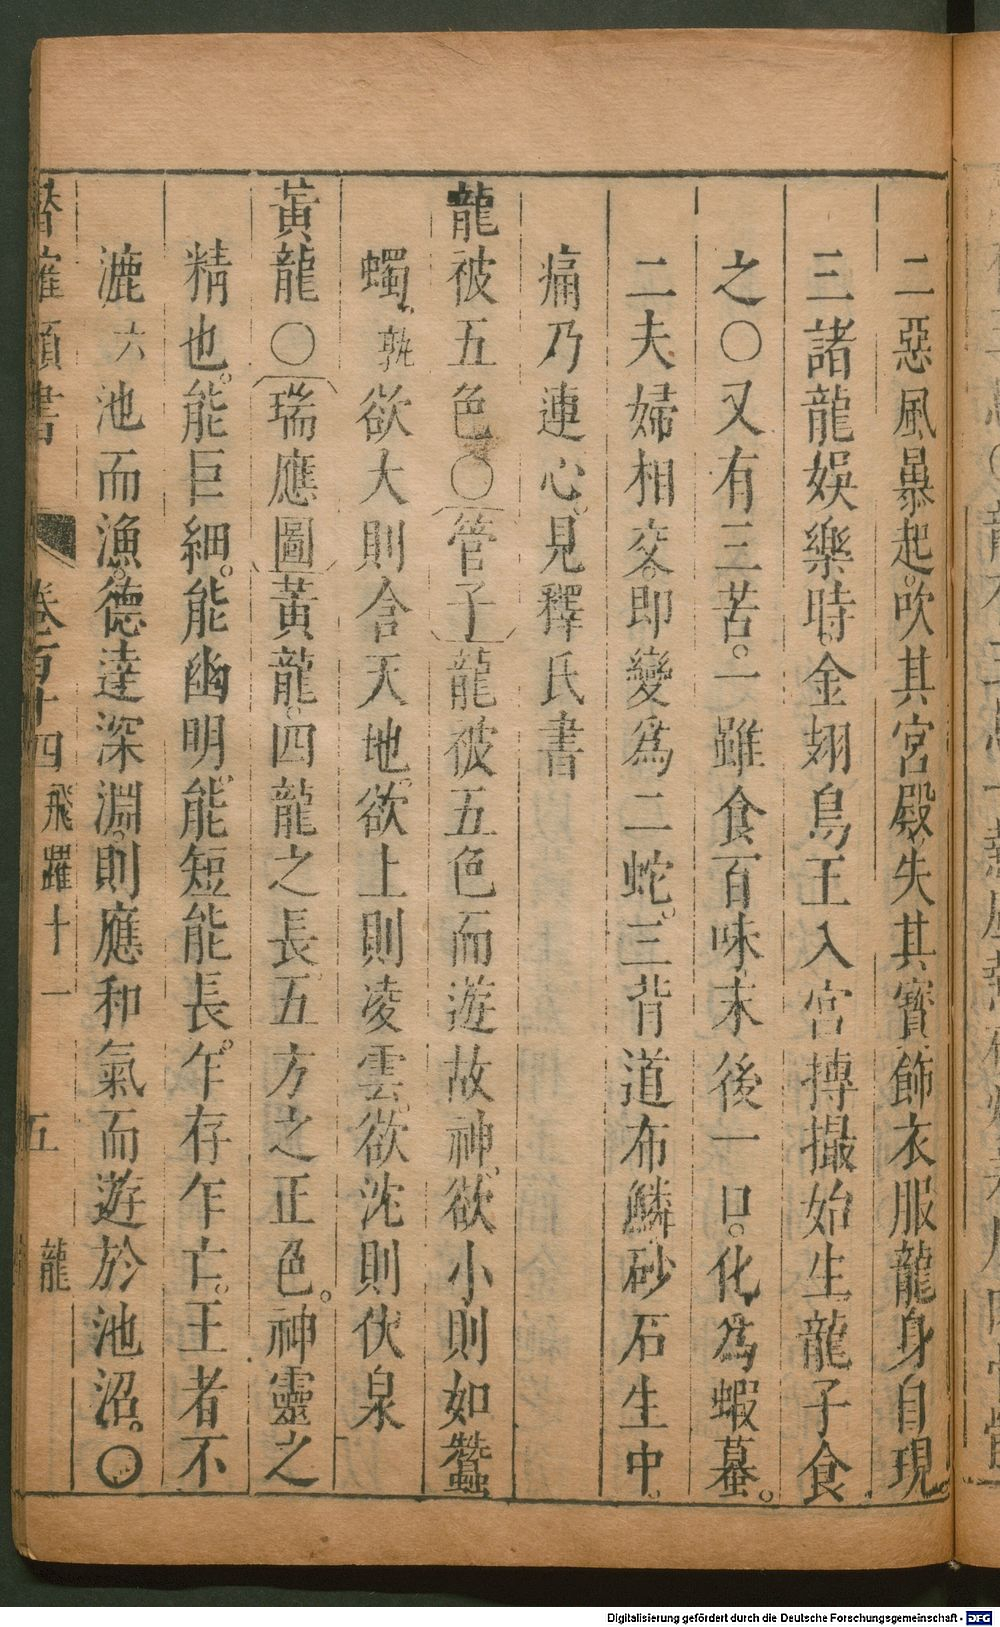 二惡風暴起。吹其宮殿。失其寶飾衣服龍身自現
三諸龍娛樂時。金翅鳥王入宮摶撮始生龍子食
之〇又有三苦。一雖食百味。末後一口。化爲蝦蟇。
二夫婦相交。即變爲二蛇。三背道布鱗砂石生中。
痛乃連心。見釋氏書
龍被五色〇管子龍被五色而遊故神。欲小則如蠶
蠋。欲大則含天地。欲上則凌雲。欲沈則伏泉
黃龍〇瑞應圖黃龍。四龍之長。五方之正色。神靈之
精也。能巨細。能幽明。能短能長。乍存乍亡。王者不
漉六池而漁。德達深淵。則應和氣而遊於池沼。〇
潛確類書 卷百十四 飛躍十一 五 龍
Digitalisierung gefördert durch die Deutsche Forschungsgemeinschaft - DFG